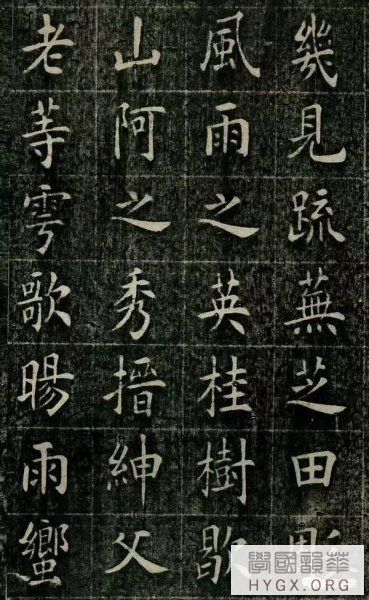 幾見疏蕪芝田
風雨之英桂樹歇
山阿之秀搢紳父
老等雩歌暘雨蠁
華韻國學
HYGX.ORG